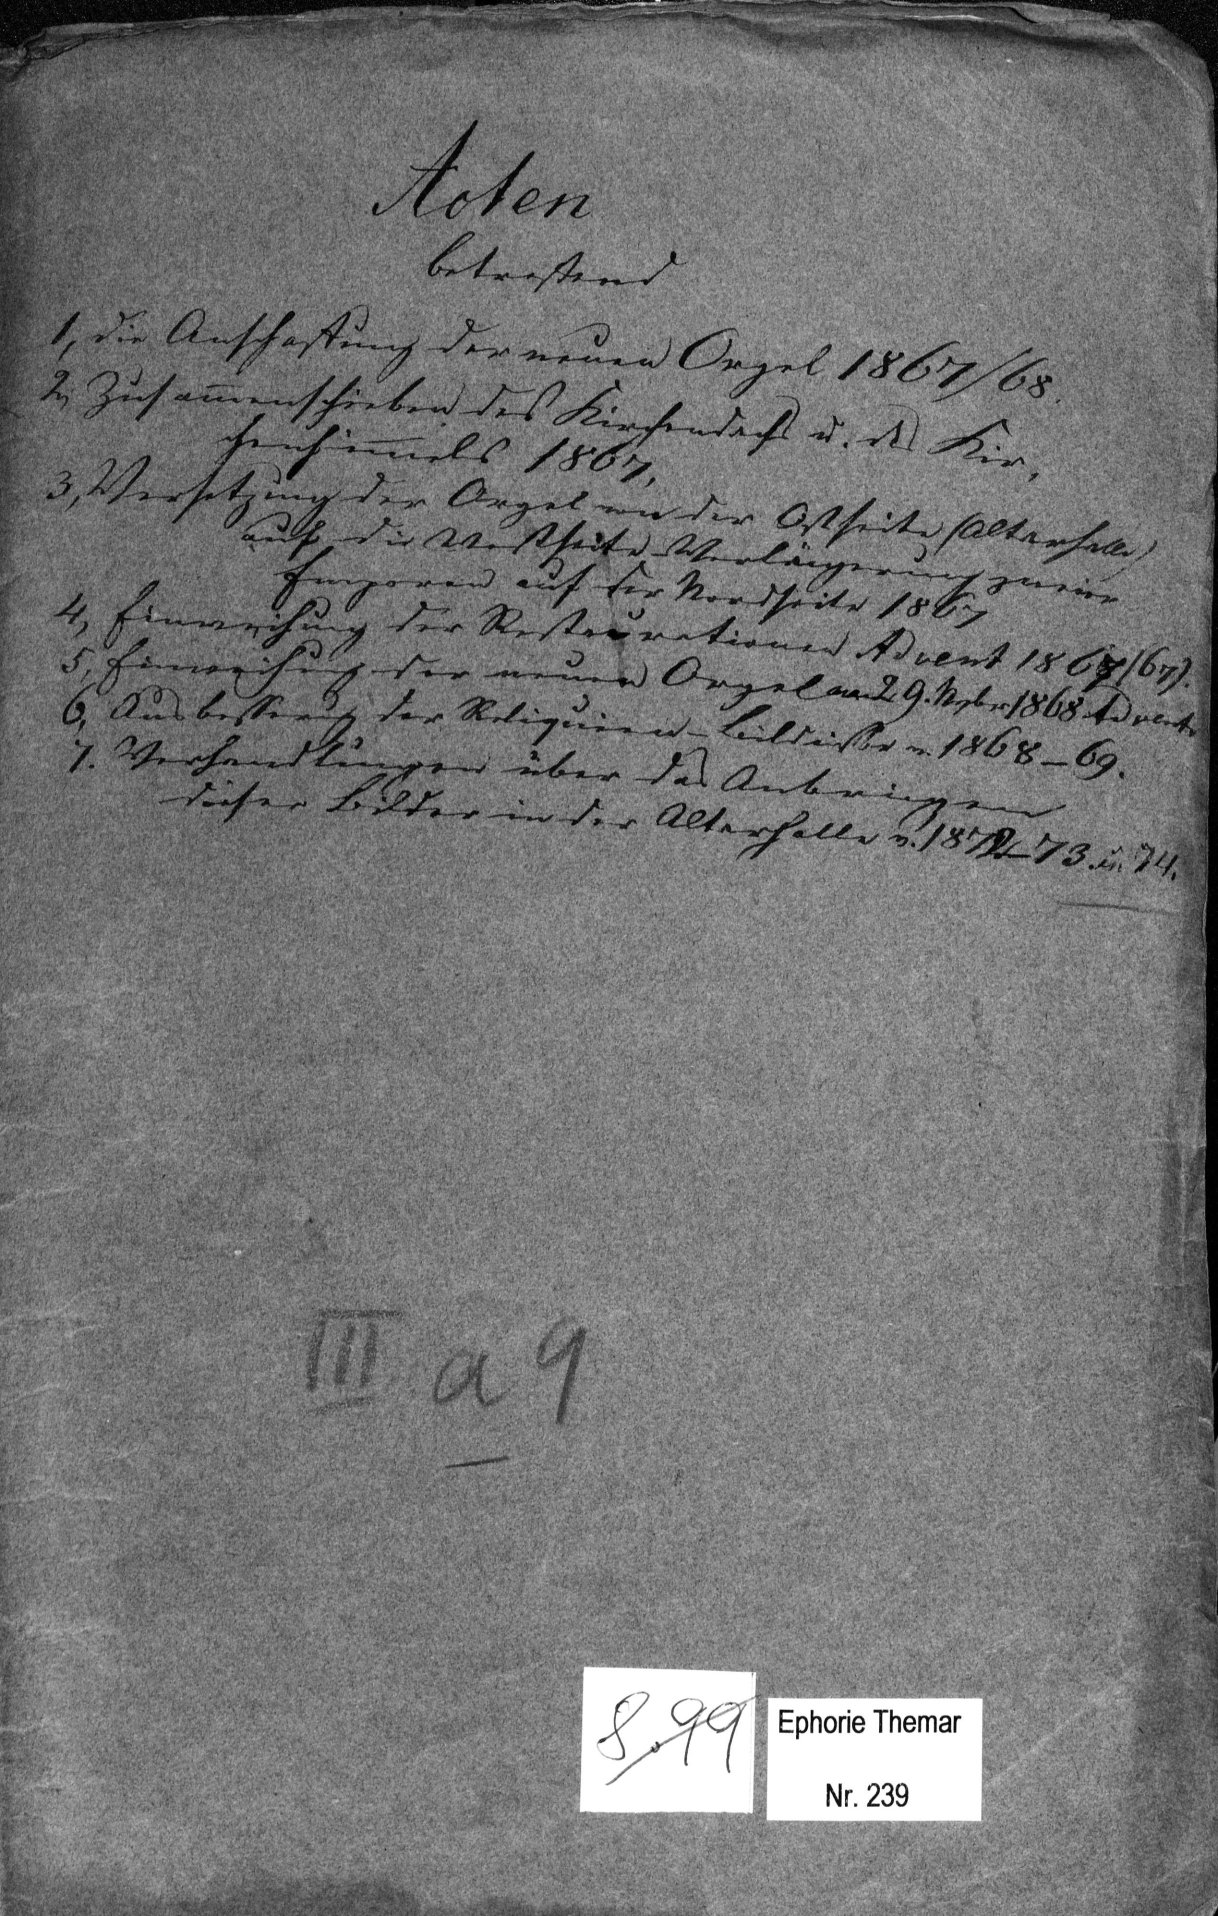 Acten
betreffend
1, die Anschaffung der neuen Orgel 1867/68.
2, Zusammenschieben des Kirchendachs u. des Kir,
chenhimmels 1867,
3, Versetzung der Orgel von der Ostseite (Altarhalle)
auf die Westseite Verlängerung zweier
Emporen auf der Nordseite 1867
4, Einweihung der Restaurationen Advent 1867 (67).
5, Einweihung der neuen Orgel am 29. Nvbr 1868 Advent
6, Ausbesserung der Reliquien-Bildnisse v. 1868-69.
7. Verhandlungen über das Anbringen
dieser Bilder in der Altarhalle v. 1872-73 u. 74.
III a 9
8.99
Ephorie Themar
Nr. 239